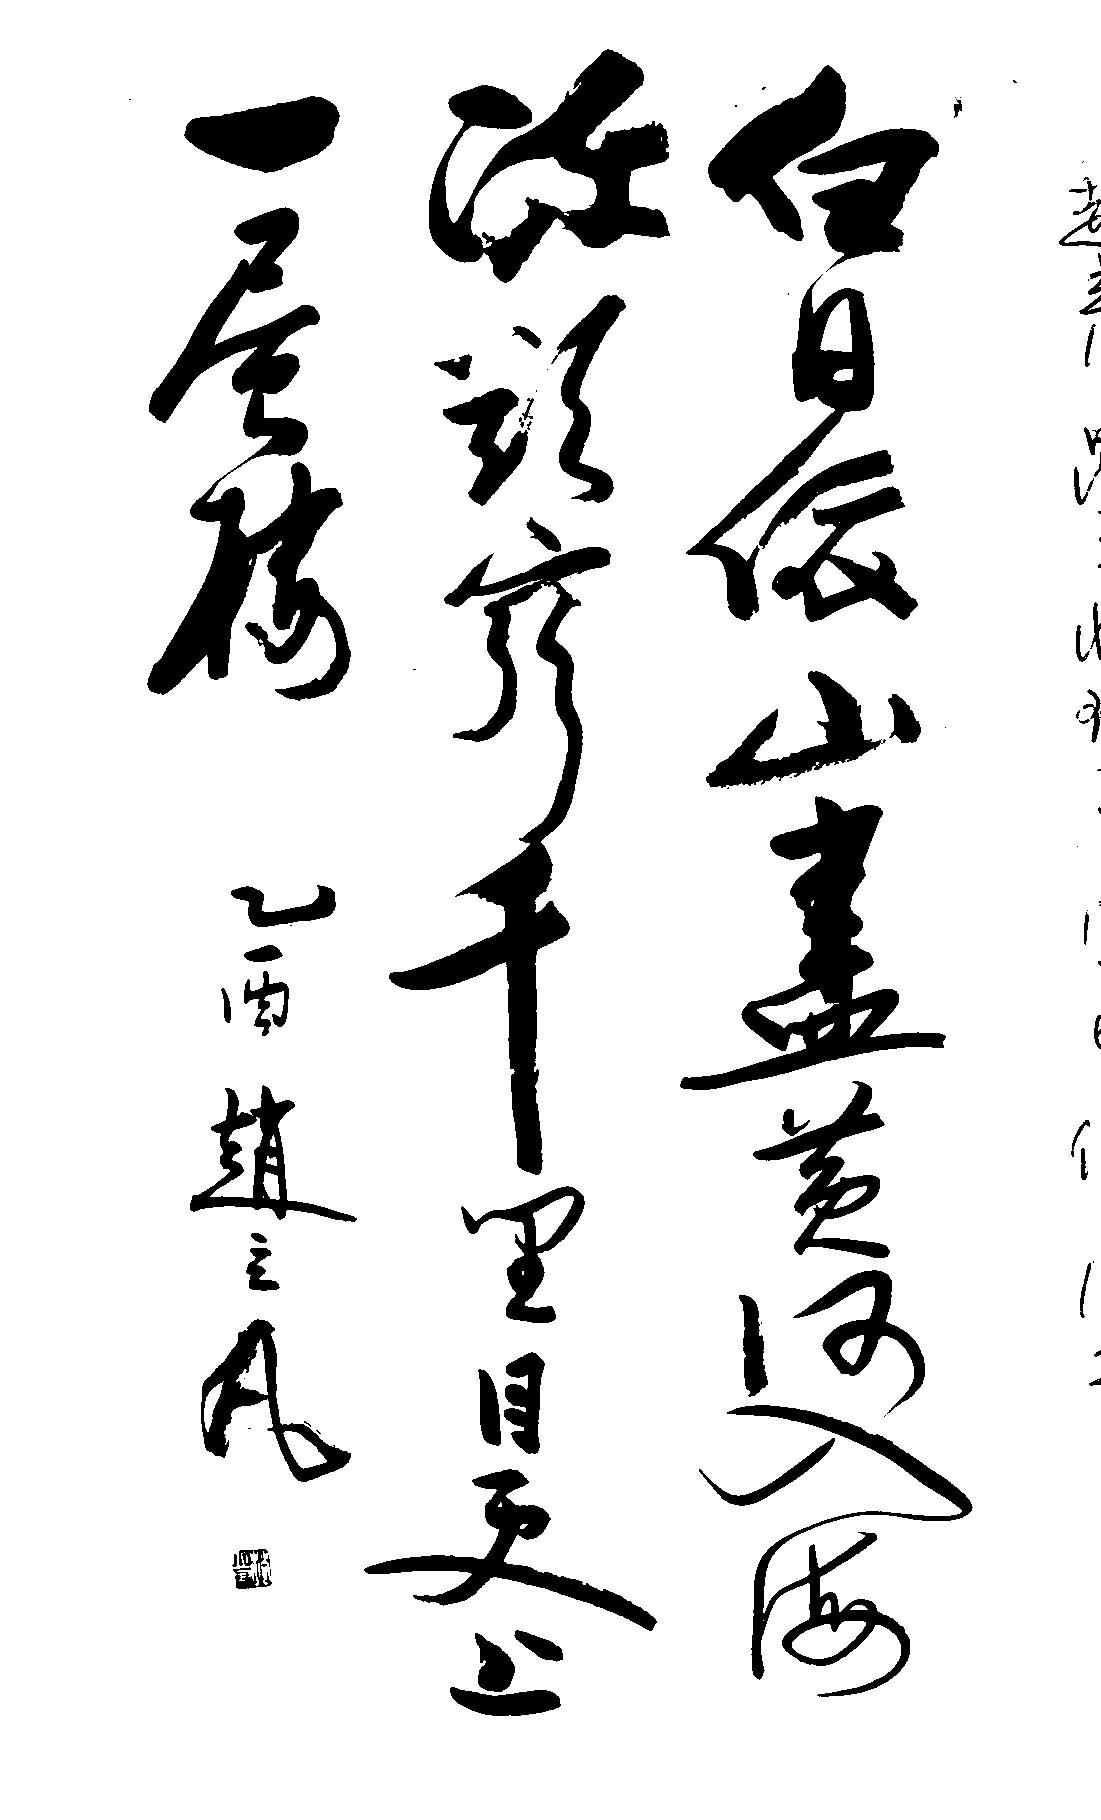 白日依山盡黃河入海
流欲窮千里目更上
一層樓
乙酉 趙立凡